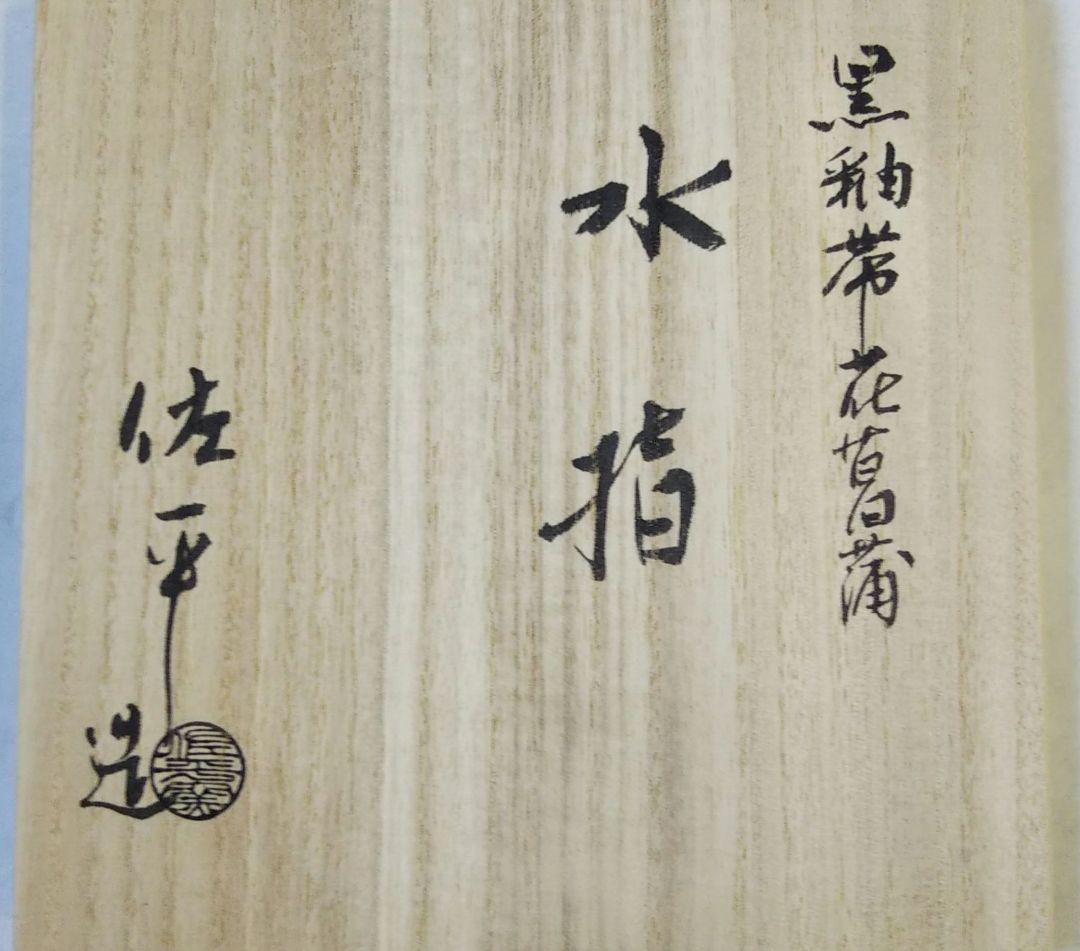 黒釉帯花菖蒲
水指
佐平造